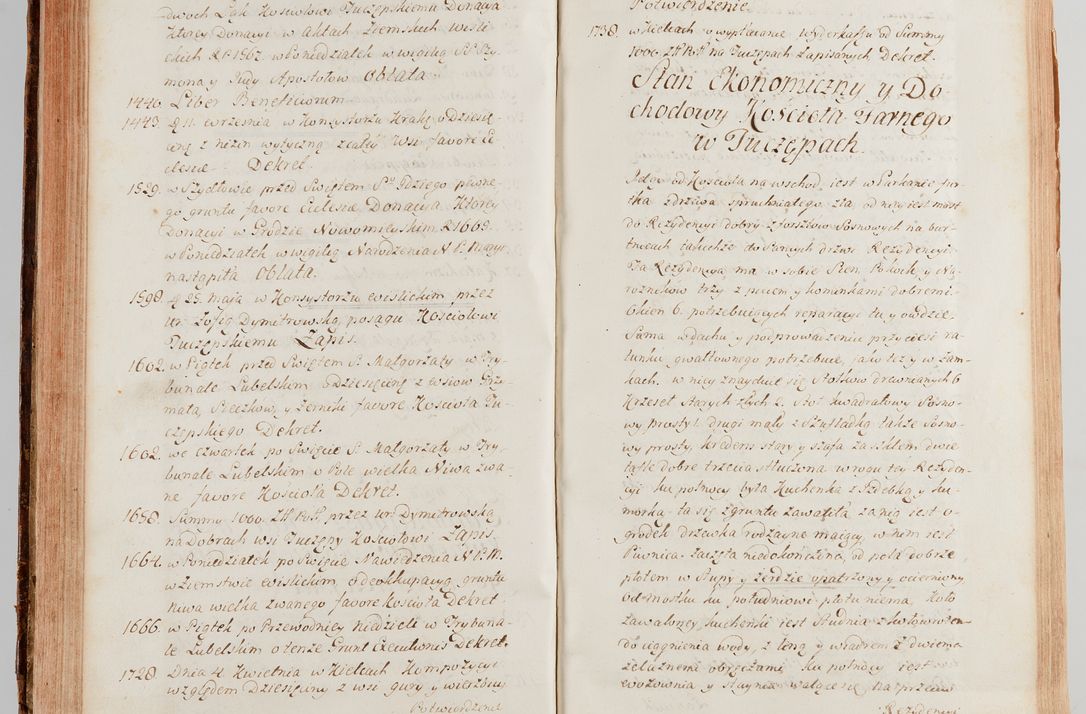 dwoch Łąk Kosciołowi Tuczępskiemu Donacya
Ktorey Donacyi w Aktach Ziemskich Wisli-
ckich R. 1562. w Poniedziałek w wigilią SS. Szy-
mona y Judy Apostołow Oblata.
1440. Liber Beneficiorum.
1443. d. 11. Września w Konsystorzu Krakɔ o Dziesię-
cinę z nezin wytyczną z całey Wsi favore Ec-
clesiæ Dekret.
1529. w Szydłowie przed Swiętem Sgo Idziego pewne-
go gruntu favore Ecclesiæ Donacya Ktorey
Donacyi w Grodzie Nowomieyskim R. 1669.
w Poniedziałek w wigilią Narodzenia N. P. Maryi
nastąpiła Oblata.
1598. d. 25. Maja w Konsystorzu wislickim przez
Ur. Zofią Dymitrowską posagu Kosciołowi
Tuczępskiemu Zapis.
1602. w Piątek przed Swiętem S. Małgorzaty w Try-
bunale Lubelskim o Dziesięcinę z wsiow Grzy-
mała, Sieczkow, y Zerniki favore Koscioła Tu-
czępskiego Dekret.
1602. we Czwartek po Swięcie S. Małgorzaty w Try-
bunale Lubelskim o Pole wielka Niwa zwa-
ne favore Koscioła Dekret.
1658. Summy 1000. Zł. Pol. przez Ur. Dymitrowską
na Dobrach wsi Tuczępy Kosciołowi Zapis.
1664. w Poniedziałek po Swięcie Nawiedzenia N. P. M.
w Ziemstwie wislickim o deokkupacyą gruntu
niwa wielka zwanego favore Koscioła Dekret.
1666. w Piątek po Przewodniey niedzieli w Trybuna-
le Lubelskim o tenże Grunt Executionis Dekret.
1728. Dnia 4. Kwietnia w Kielcach Kompozycyi
względem Dziesięciny z wsi gury y wierzbicy
Potwierdzenie
Potwierdzenie.
1738. w Kielcach o wypłacanie wyderkaffu od Summy
1000. Zł. Pol. na Tuczępach zapisanych Dekret.
Stan Ekonomiczny y Do-
chodowy Kościeła Farnego
w Tuczępach.
Idąc od Koscioła na wschod, iest w Parkanie fur-
tka z drzewa spruchniałego zła od niey iest most
do Rezydencyi dobry z forsztow Sosnowych na bur-
tnicach takichże do samych drzwi Rezydencyi.
Ta Rezydencya ma w sobie Sień, Pokoik y Na-
roznikow trzy z piecem y kominkami dobremi.
Okien 6. potrzebuiących reparacyi tu y owdzie.
Sama w dachu y podprowadzeniu przyciesi ra-
tunku gwałtownego potrzebuie, jako też y w zam-
kach. w niey znayduie się Stołkow drewnianych 6
Krzeseł Starych złych 2. Stoł kwadratowy Sosno-
wy prosty 1. drugi mały z Szufladką także Sosno-
wy prosty, kredens stary y szafa za szkłem dwie
tafle dobre trzecia stłuczona. w rogu tey Rezyden-
cyi ku połnocy była Kuchenka z Izdebką y ku-
morką ta się z gruntu zawaliła za nią iest o-
grodek drzewka rodzayne maiący, w nim iest
Piwnica zaczęta niedokończona, od pola dobrze
płotem w Słupy y żerdzie opatrzony y ocierniony
od mostku ku południowi płotu niema. koło
zawaloney kuchenki iest Studnia z kołowrotem
do ciągnienia wody, z liną y wiadrem z dwiema
żelaznemi obręczami. ku połnocy iest
wozownia y staynia waląca się naprzeciw
Rezydencyi